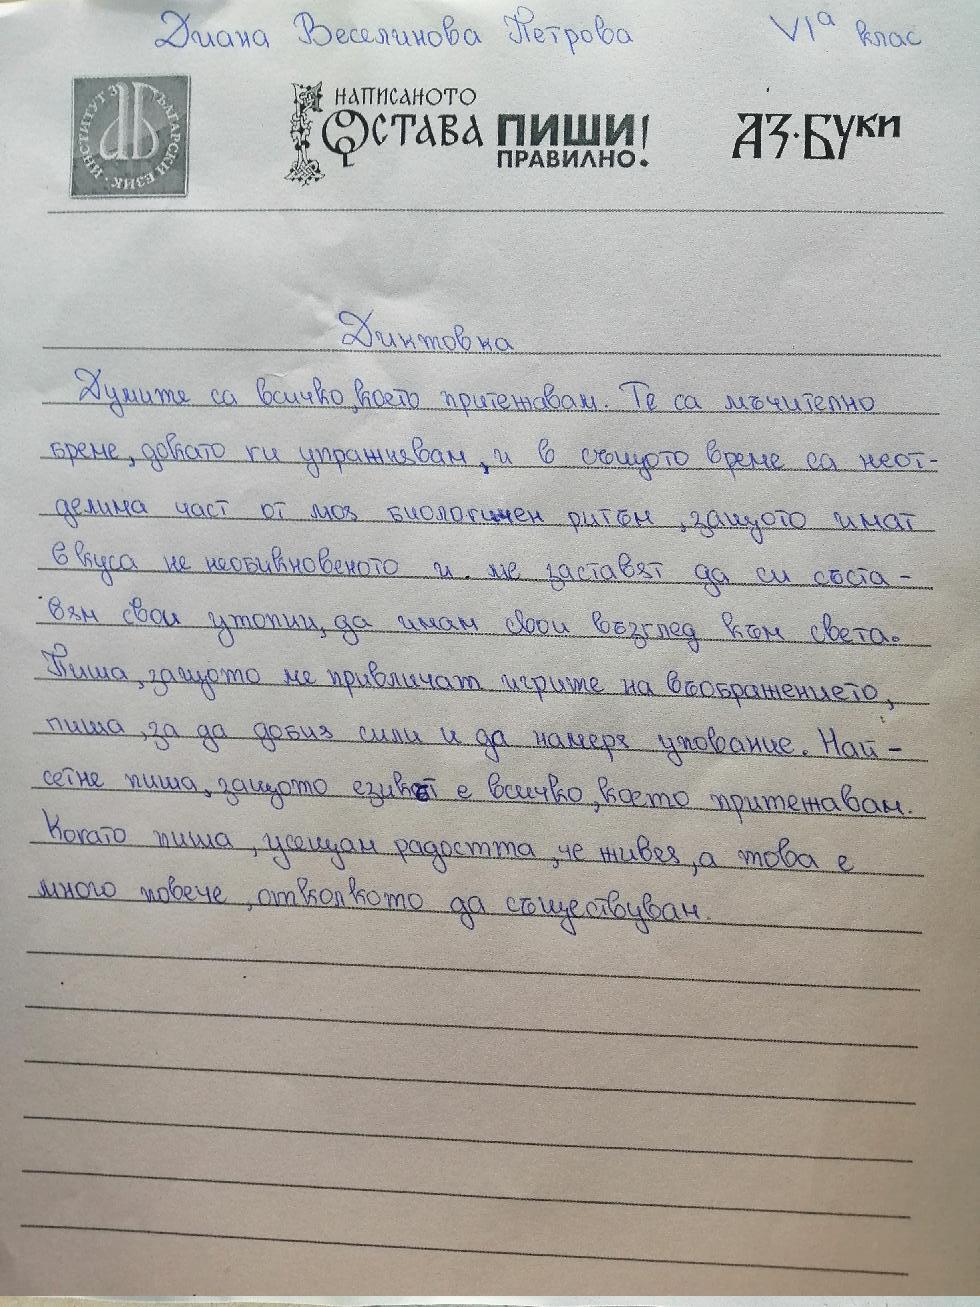 Диана Веселинова Петрова VIа клас
ИНСТИТУТ ЗА БЪЛГАРСКИ ЕЗИК
НАПИСАНОТО
ОСТАВА ПИШИ!
ПРАВИЛНО.
АЗ·БУКИ
Диктовка
Думите са всичко, което притежавам. Те са мъчително
бреме, докато ги упражнявам, и в същото време са неот-
делима част от моя биологичен ритъм, защото имат
вкуса не необикновеното и ме заставят да си съста-
вям свои утопии, да имам свои възглед към света.
Пиша, защото ме привличат игрите на въображението,
пиша, за да добия сили и да намеря упование. Най-
сетне пиша, защото езикът е всичко, което притежавам.
Когато пиша, усещам радостта, че живея, а това е
много повече, отколкото да съществувам.